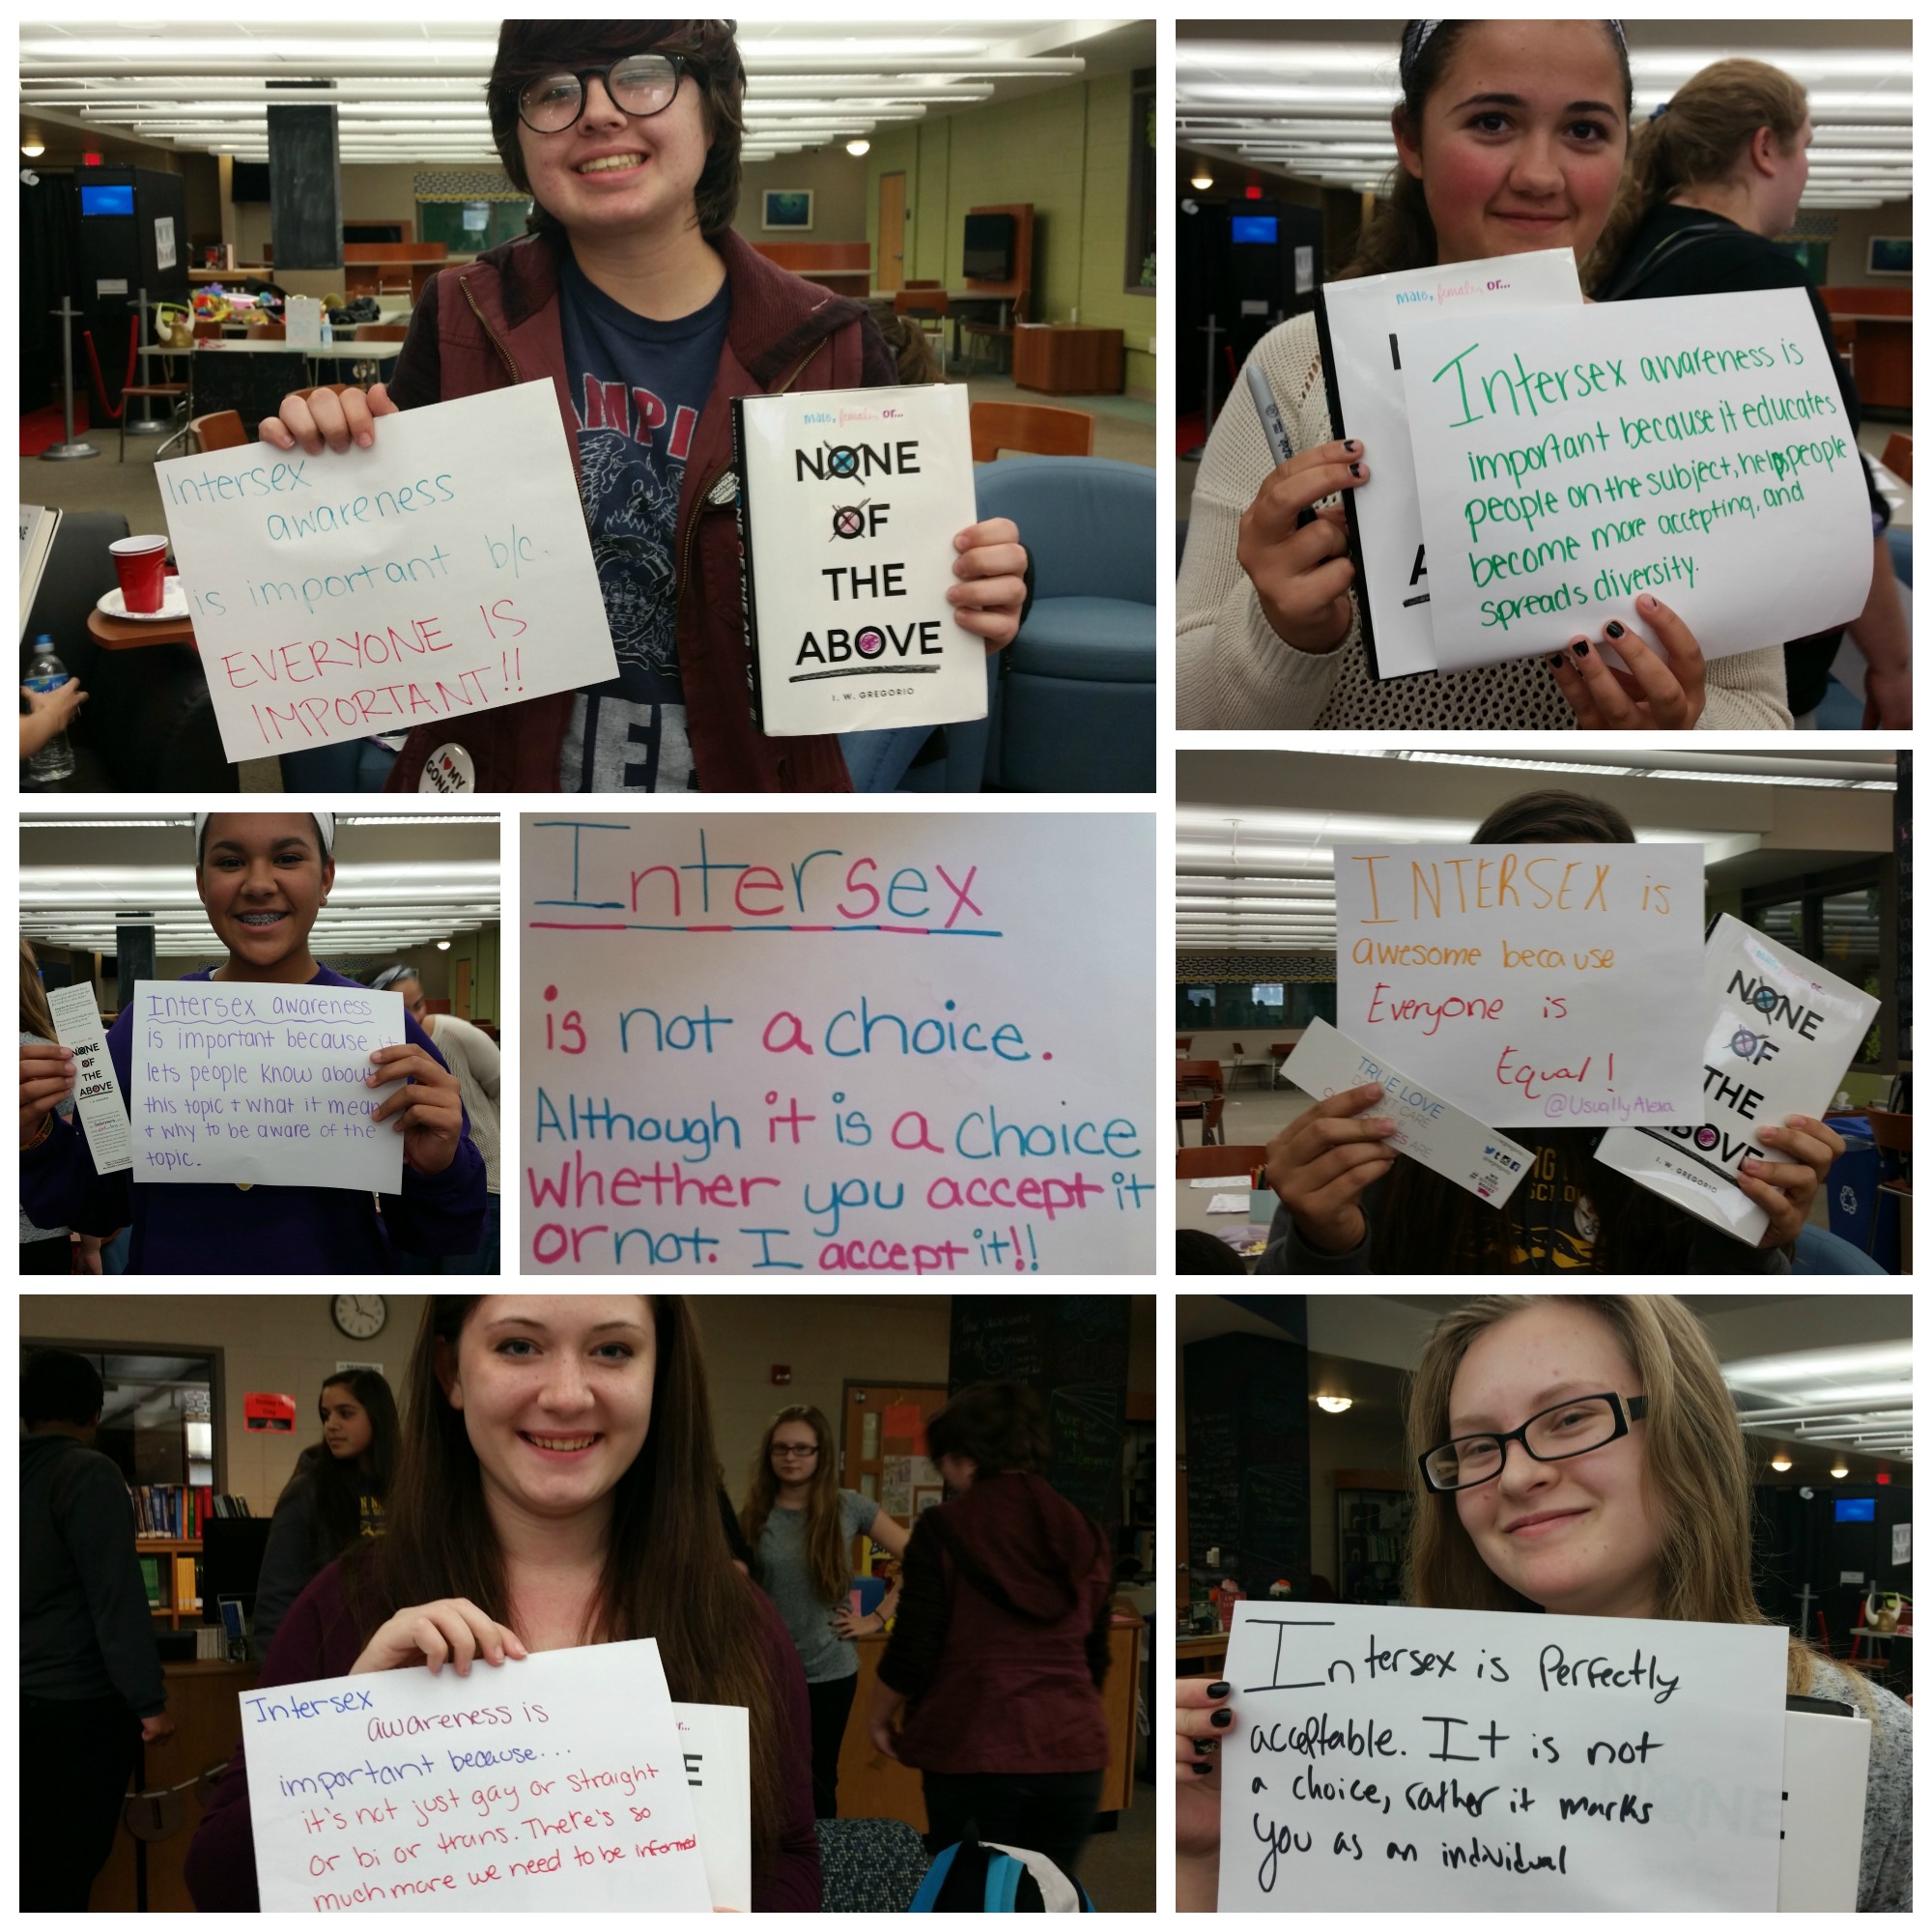 Intersex
awareness
is important b/c.
EVERYONE IS
IMPORTANT!!
male, female, or...
NONE
OF
THE
ABOVE
I. W. GREGORIO
I ♥ MY
male, female, or...
Intersex awareness is
important because it educates
people on the subject, helps people
become more accepting, and
spreads diversity.
NONE
OF
THE
ABOVE
Intersex awareness
is important because it
lets people know about
this topic + what it mean
+ why to be aware of the
topic.
Intersex
is not a choice.
Although it is a choice
whether you accept it
or not. I accept it!!
INTERSEX is
awesome because
Everyone is
Equal!
@UsuallyAlexa
TRUE LOVE
NONE
OF
THE
ABOVE
I. W. GREGORIO
Intersex
awareness is
important because...
it's not just gay or straight
or bi or trans. There's so
much more we need to be informed
Intersex is Perfectly
acceptable. It is not
a choice, rather it marks
you as an individual